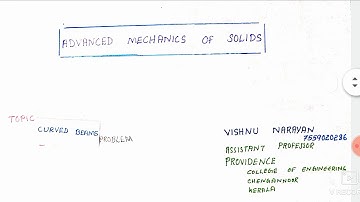 ADVANCED MECHANICS OF SOLIDS
TOPIC
CURVED BEAMS
PROBLEM
VISHNU NARAYAN
7559020286
ASSISTANT PROFESSOR
PROVIDENCE
COLLEGE OF ENGINEERING
CHENGANNOOR
KERALA